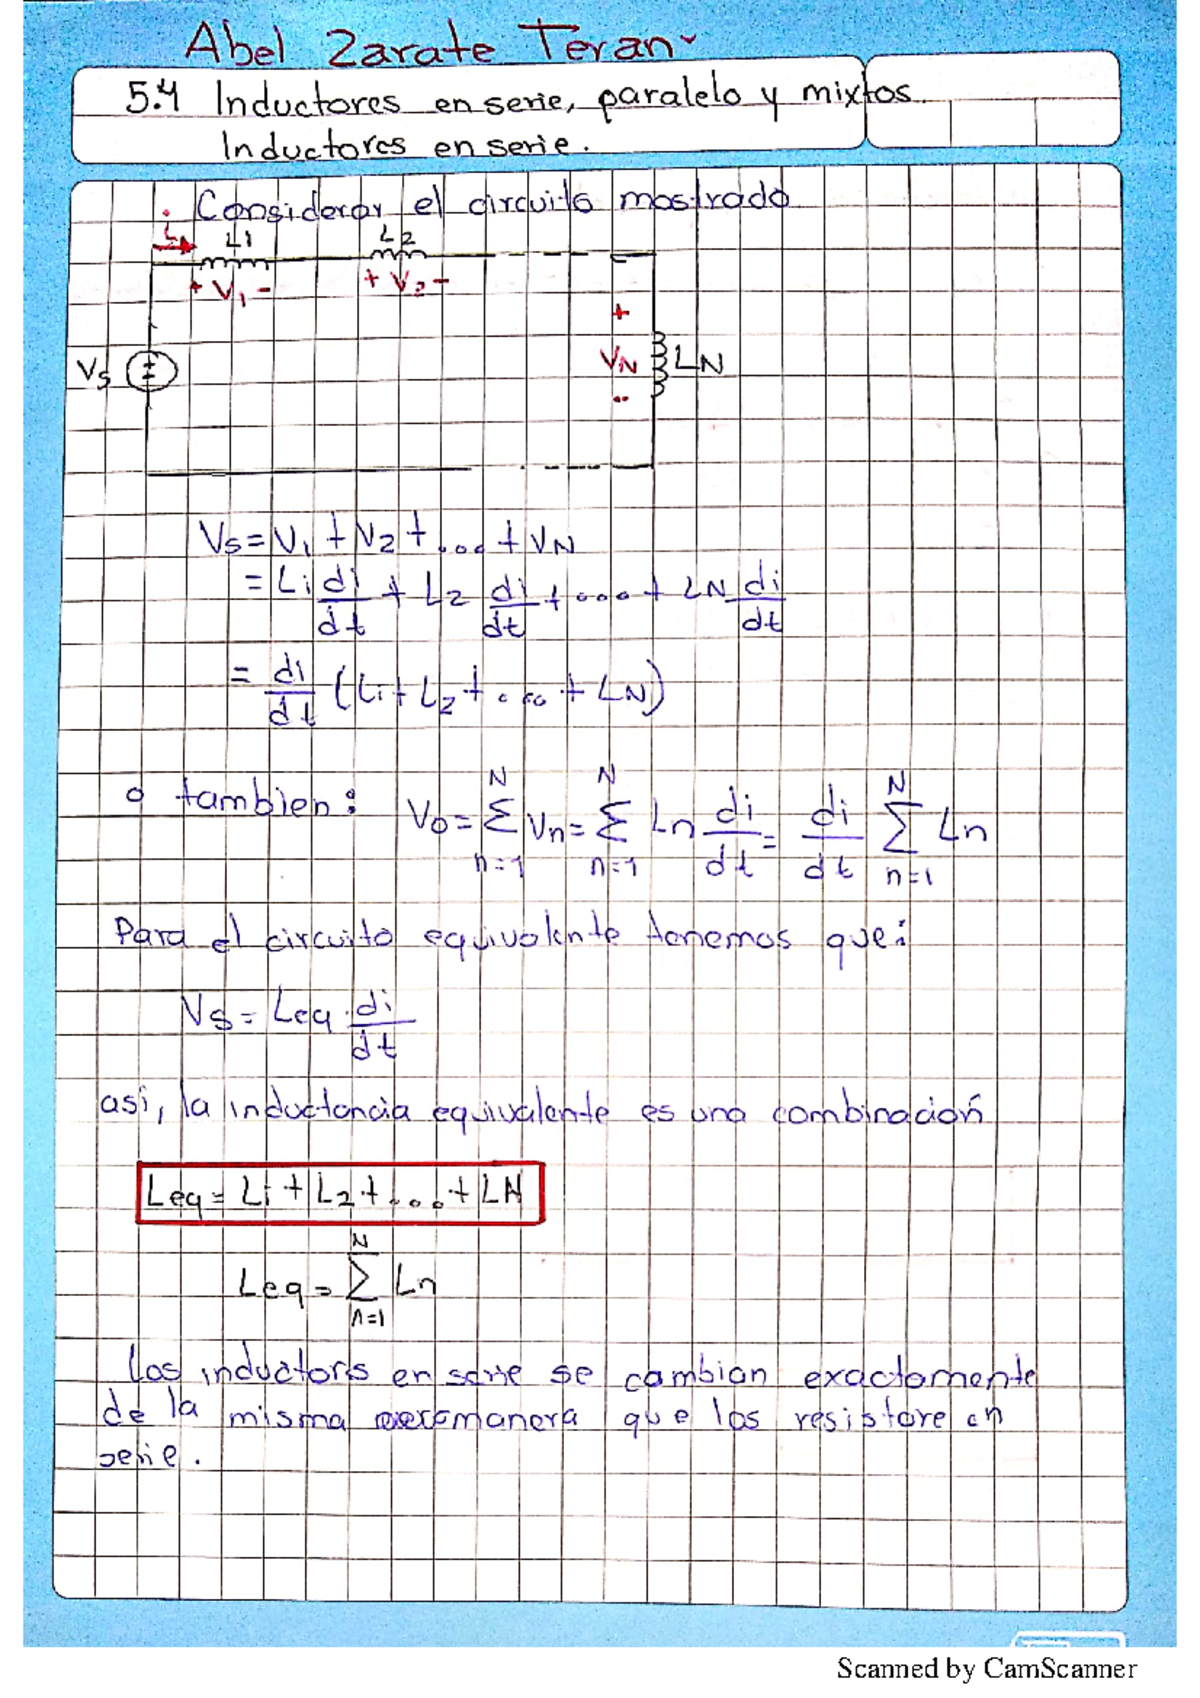 Abel Zarate Teran
5.4 Inductores en serie, paralelo y mixtos.
Inductores en serie.
Considerar el circuito mostrado
L1 L2
+ V1 - + V2 -
+
Vs VN LN
-
Vs = V1 + V2 + ... + VN
= L1 di/dt + L2 di/dt + ... + LN di/dt
= di/dt (L1 + L2 + ... + LN)
o tambien: Vo = N Σ n=1 Vn = N Σ n=1 Ln di/dt = di/dt N Σ n=1 Ln
Para el circuito equivalente tenemos que:
Vs = Leq . di/dt
asi, la inductancia equivalente es una combinación
Leq = L1 + L2 + ... + LN
Leq = N Σ n=1 Ln
Los inductores en serie se cambian exactamente
de la misma manera que los resistore en
serie.
Scanned by CamScanner